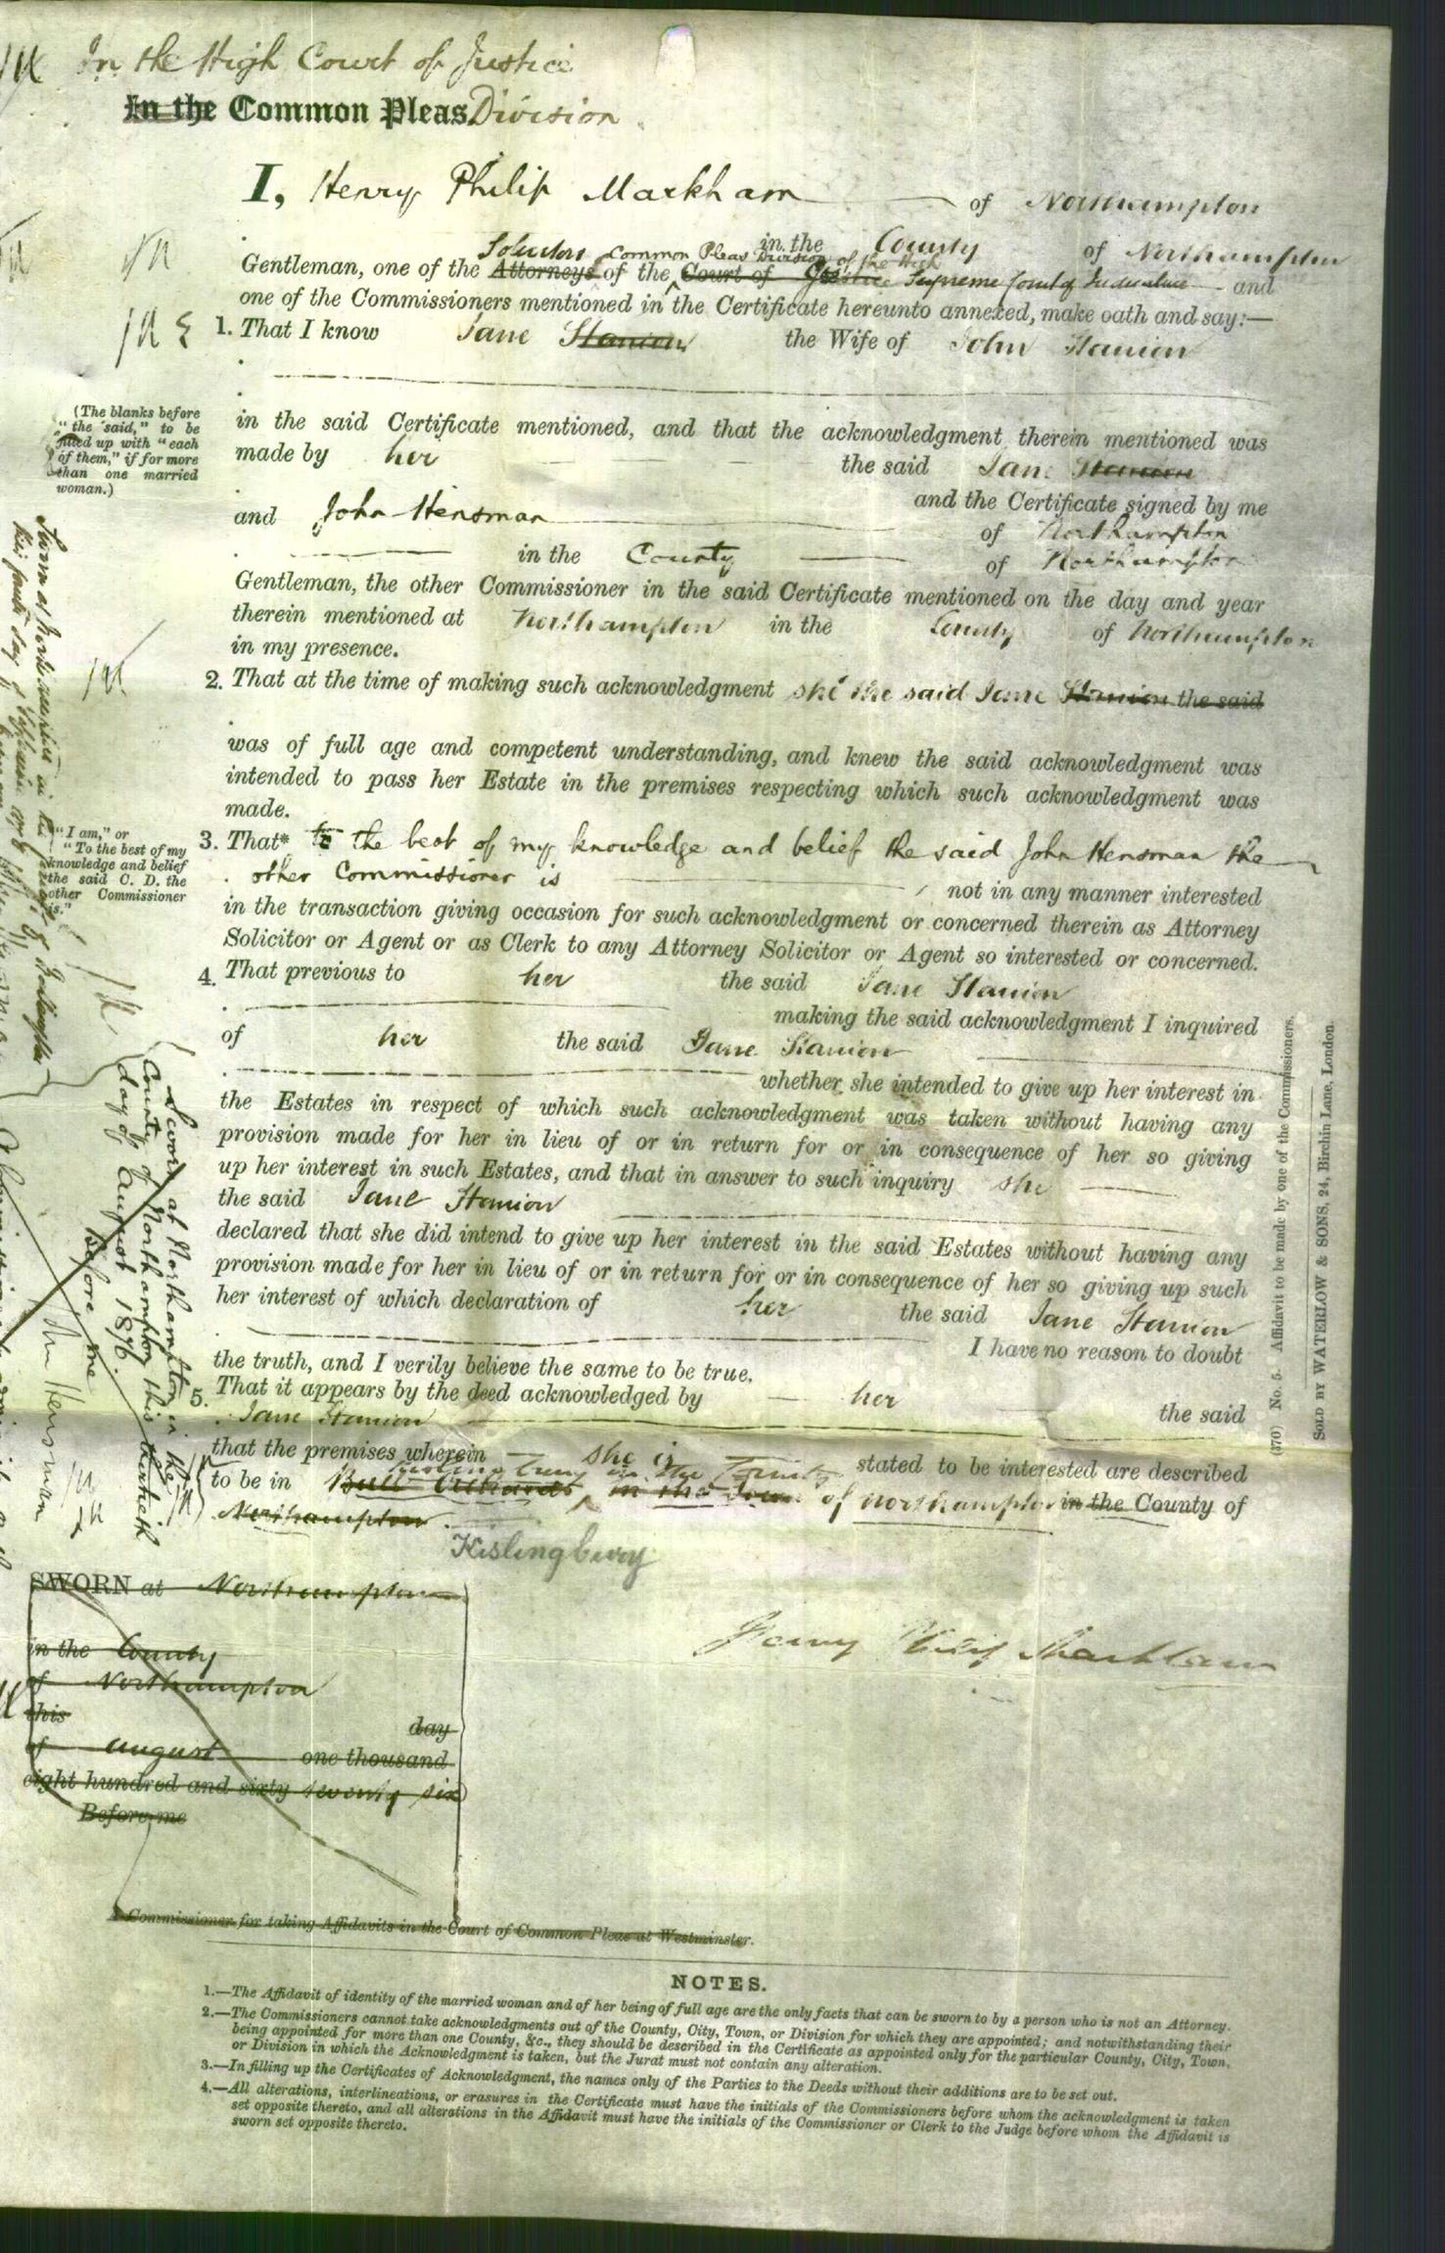 In the High Court of Justice
In the Common Pleas Division
I, Henry Philip Markham of Northampton
in the County of Northampton
Solicitors Common Pleas Division of the High
Gentleman, one of the Attorneys of the Court of Justice Supreme Court of Judicature and
one of the Commissioners mentioned in the Certificate hereunto annexed, make oath and say:—
1. That I know Jane Stanion the Wife of John Stanion
(The blanks before
"the said," to be
filled up with "each
of them," if for more
than one married
woman.)
in the said Certificate mentioned, and that the acknowledgment therein mentioned was
made by her the said Jane Stanion
and the Certificate signed by me
and John Hensman of Northampton
in the County of Northampton
Gentleman, the other Commissioner in the said Certificate mentioned on the day and year
therein mentioned at Northampton in the County of Northampton
in my presence.
2. That at the time of making such acknowledgment she the said Jane Stanion the said
was of full age and competent understanding, and knew the said acknowledgment was
intended to pass her Estate in the premises respecting which such acknowledgment was
made.
"I am," or
"To the best of my
knowledge and belief
the said C. D. the
other Commissioner
is."
3. That* to the best of my knowledge and belief the said John Hensman the
other Commissioner is not in any manner interested
in the transaction giving occasion for such acknowledgment or concerned therein as Attorney
Solicitor or Agent or as Clerk to any Attorney Solicitor or Agent so interested or concerned.
4. That previous to her the said Jane Stanion
making the said acknowledgment I inquired
of her the said Jane Stanion
whether she intended to give up her interest in
the Estates in respect of which such acknowledgment was taken without having any
provision made for her in lieu of or in return for or in consequence of her so giving
up her interest in such Estates, and that in answer to such inquiry she
the said Jane Stanion
declared that she did intend to give up her interest in the said Estates without having any
provision made for her in lieu of or in return for or in consequence of her so giving up such
her interest of which declaration of her the said Jane Stanion
I have no reason to doubt
the truth, and I verily believe the same to be true.
5. That it appears by the deed acknowledged by her the said
Jane Stanion
that the premises wherein she is stated to be interested are described
in the County
to be in in the Town of Northampton in the County of
Northampton
Kislingbury
Henry Philip Markham
SWORN at Northampton
in the County
of Northampton
this day
of August one thousand
eight hundred and sixty seventy six
Before me
A Commissioner for taking Affidavits in the Court of Common Pleas at Westminster.
Sworn at Northampton in the
County of Northampton this thirtieth
day of August 1876.
Before me
John Hensman
(370) No. 5. Affidavit to be made by one of the Commissioners.
SOLD BY WATERLOW & SONS, 24, Birchin Lane, London.
NOTES.
1.—The Affidavit of identity of the married woman and of her being of full age are the only facts that can be sworn to by a person who is not an Attorney.
2.—The Commissioners cannot take acknowledgments out of the County, City, Town, or Division for which they are appointed; and notwithstanding their
being appointed for more than one County, &c., they should be described in the Certificate as appointed only for the particular County, City, Town,
or Division in which the Acknowledgment is taken, but the Jurat must not contain any alteration.
3.—In filling up the Certificates of Acknowledgment, the names only of the Parties to the Deeds without their additions are to be set out.
4.—All alterations, interlineations, or erasures in the Certificate must have the initials of the Commissioners before whom the acknowledgment is taken
set opposite thereto, and all alterations in the Affidavit must have the initials of the Commissioner or Clerk to the Judge before whom the Affidavit is
sworn set opposite thereto.